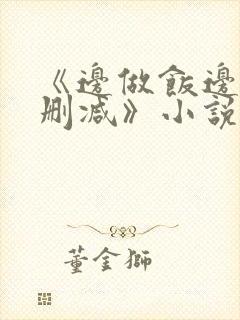 《邊做飯邊
刪減》小說
董金獅